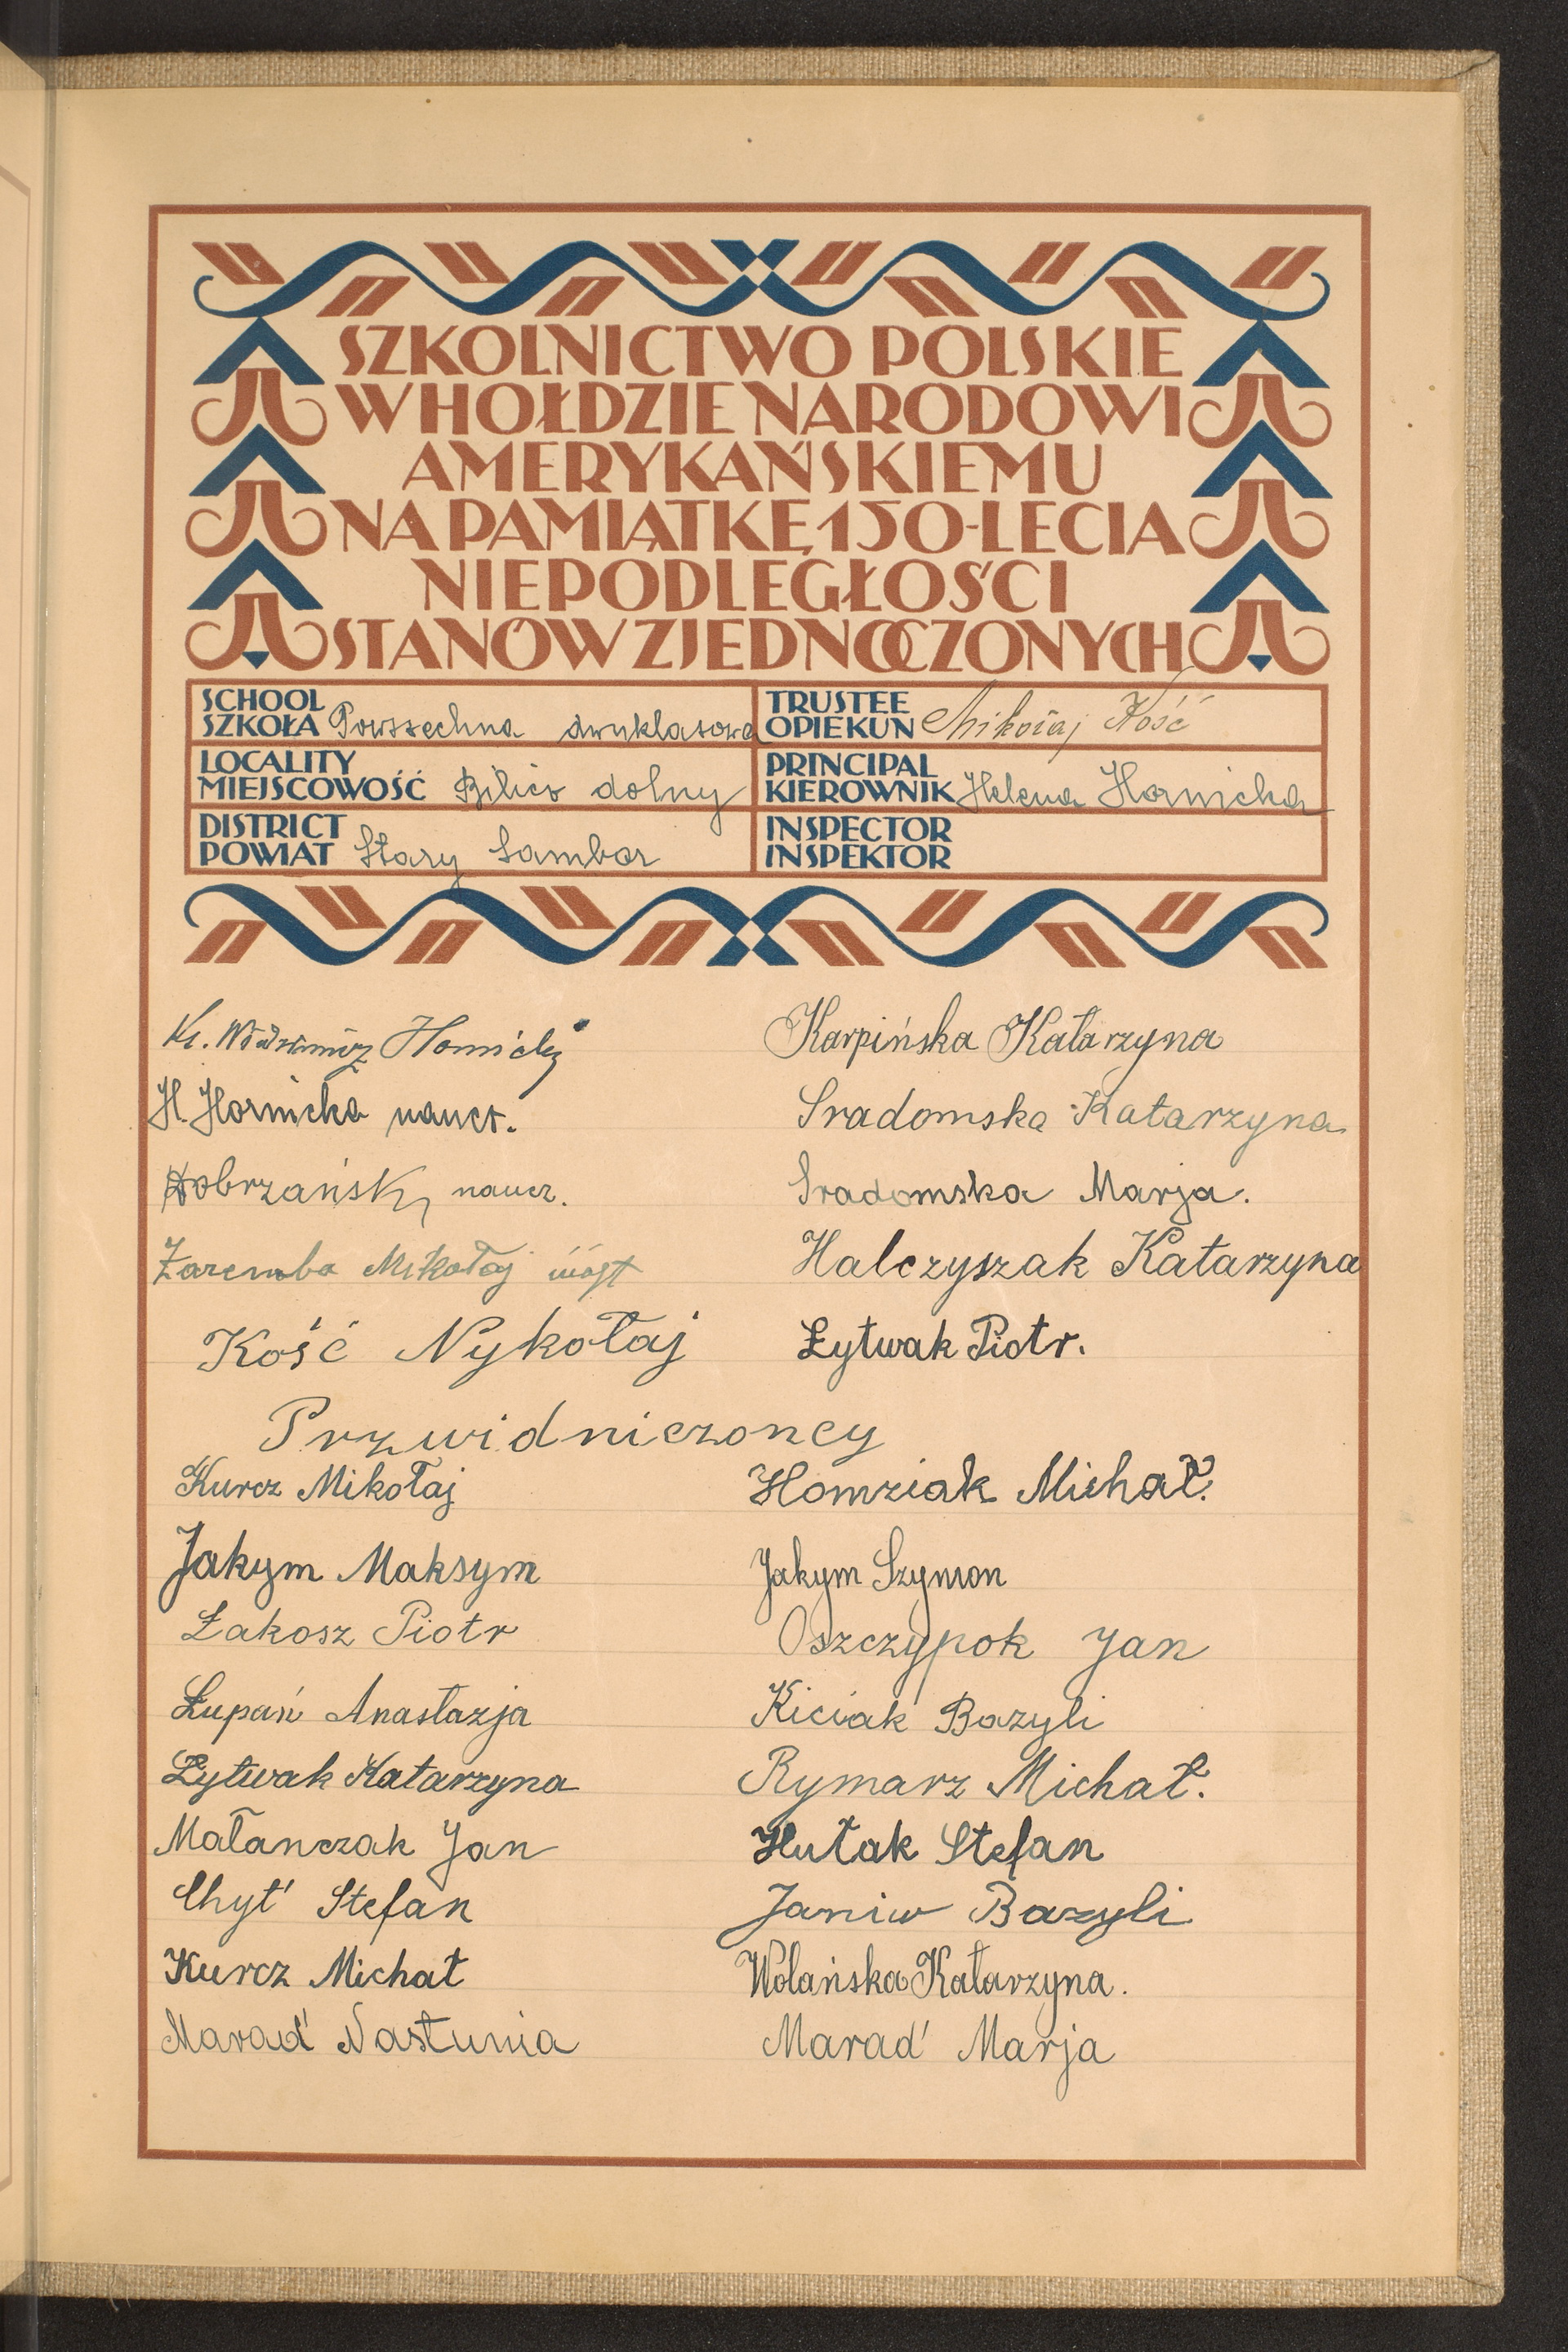 SZKOLNICTWO POLSKIE
W HOŁDZIE NARODOWI
AMERYKAŃSKIEMU
NA PAMIĄTKĘ 150-LECIA
NIEPODLEGŁOŚCI
STANÓW ZJEDNOCZONYCH
SCHOOL
SZKOŁA Powszechna dwuklasowa
TRUSTEE
OPIEKUN Mikołaj Kość
LOCALITY
MIEJSCOWOŚĆ Bilicz dolny
PRINCIPAL
KIEROWNIK Helena Hornicka
DISTRICT
POWIAT Stary Sambor
INSPECTOR
INSPEKTOR
Ks. Włodzimierz Hornicki
H. Hornicka naucz.
Dobrzański naucz.
Zaremba Mikołaj wójt
Kość Nykołaj
Przwidniczoncy
Kurcz Mikołaj
Jakym Maksym
Łakosz Piotr
Łupań Anastazja
Łytwak Katarzyna
Małanczak Jan
Chyt' Stefan
Kurcz Michał
Marad' Nastunia
Karpińska Katarzyna
Sradomska Katarzyna
Sradomska Marja.
Halczyszak Katarzyna
Łytwak Piotr.
Homziak Michał.
Jakym Szymon
Oszczypok Jan
Kiciak Bazyli
Rymarz Michał.
Hutak Stefan
Janiw Bazyli
Wolańska Katarzyna.
Marad' Marja